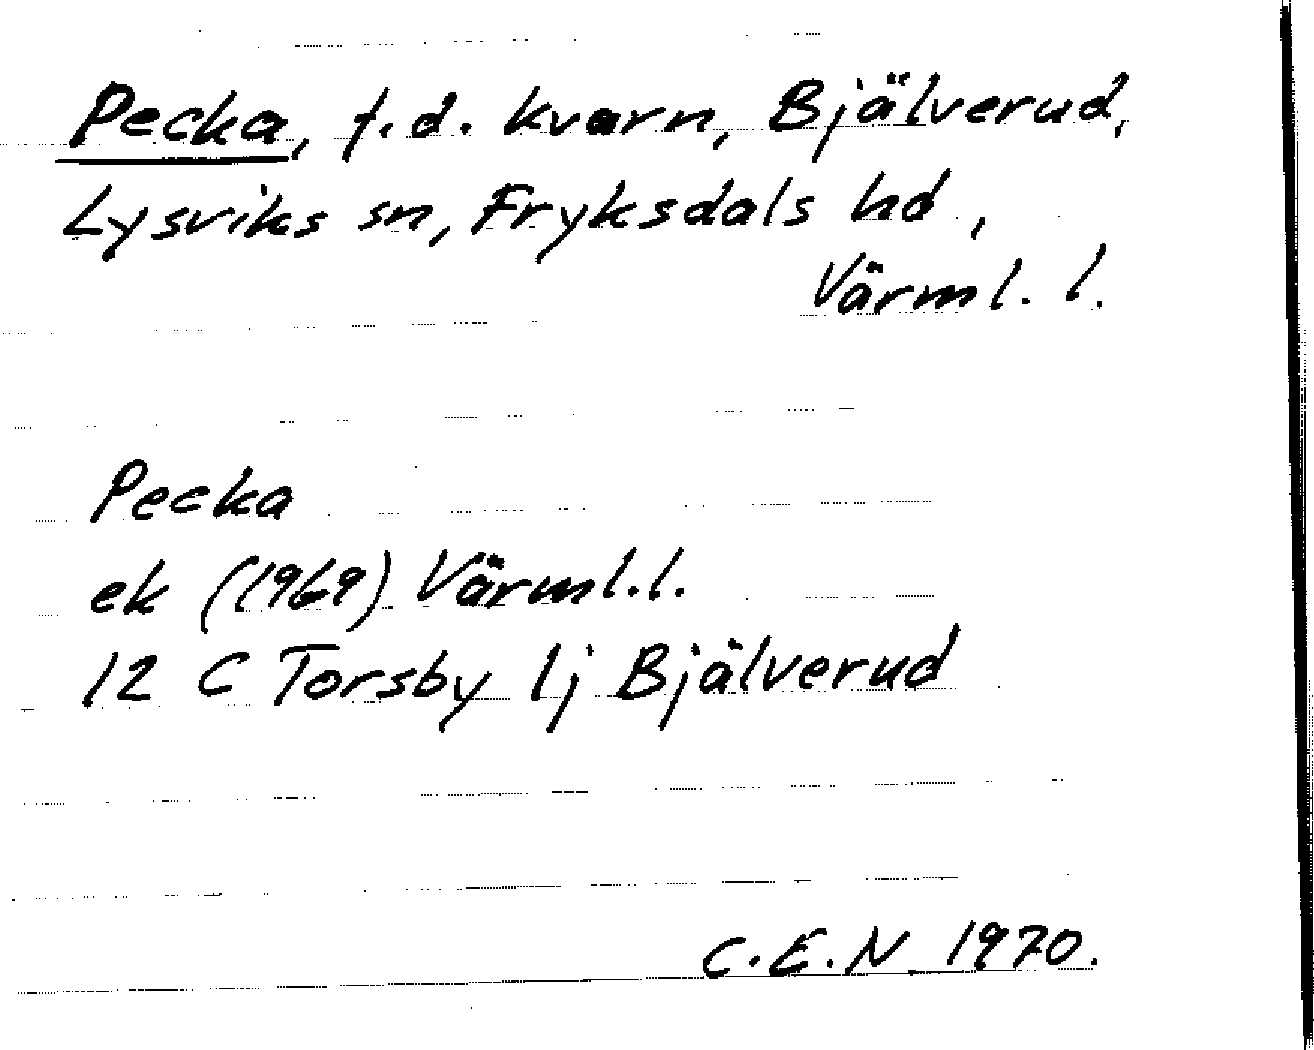 Pecka, f.d. kvarn, Bjälverud,
Lysviks sn, Fryksdals hd,
Värml. l.
Pecka
ek (1969) Värml.l.
12 C Torsby 1j Bjälverud
C.E.N 1970.